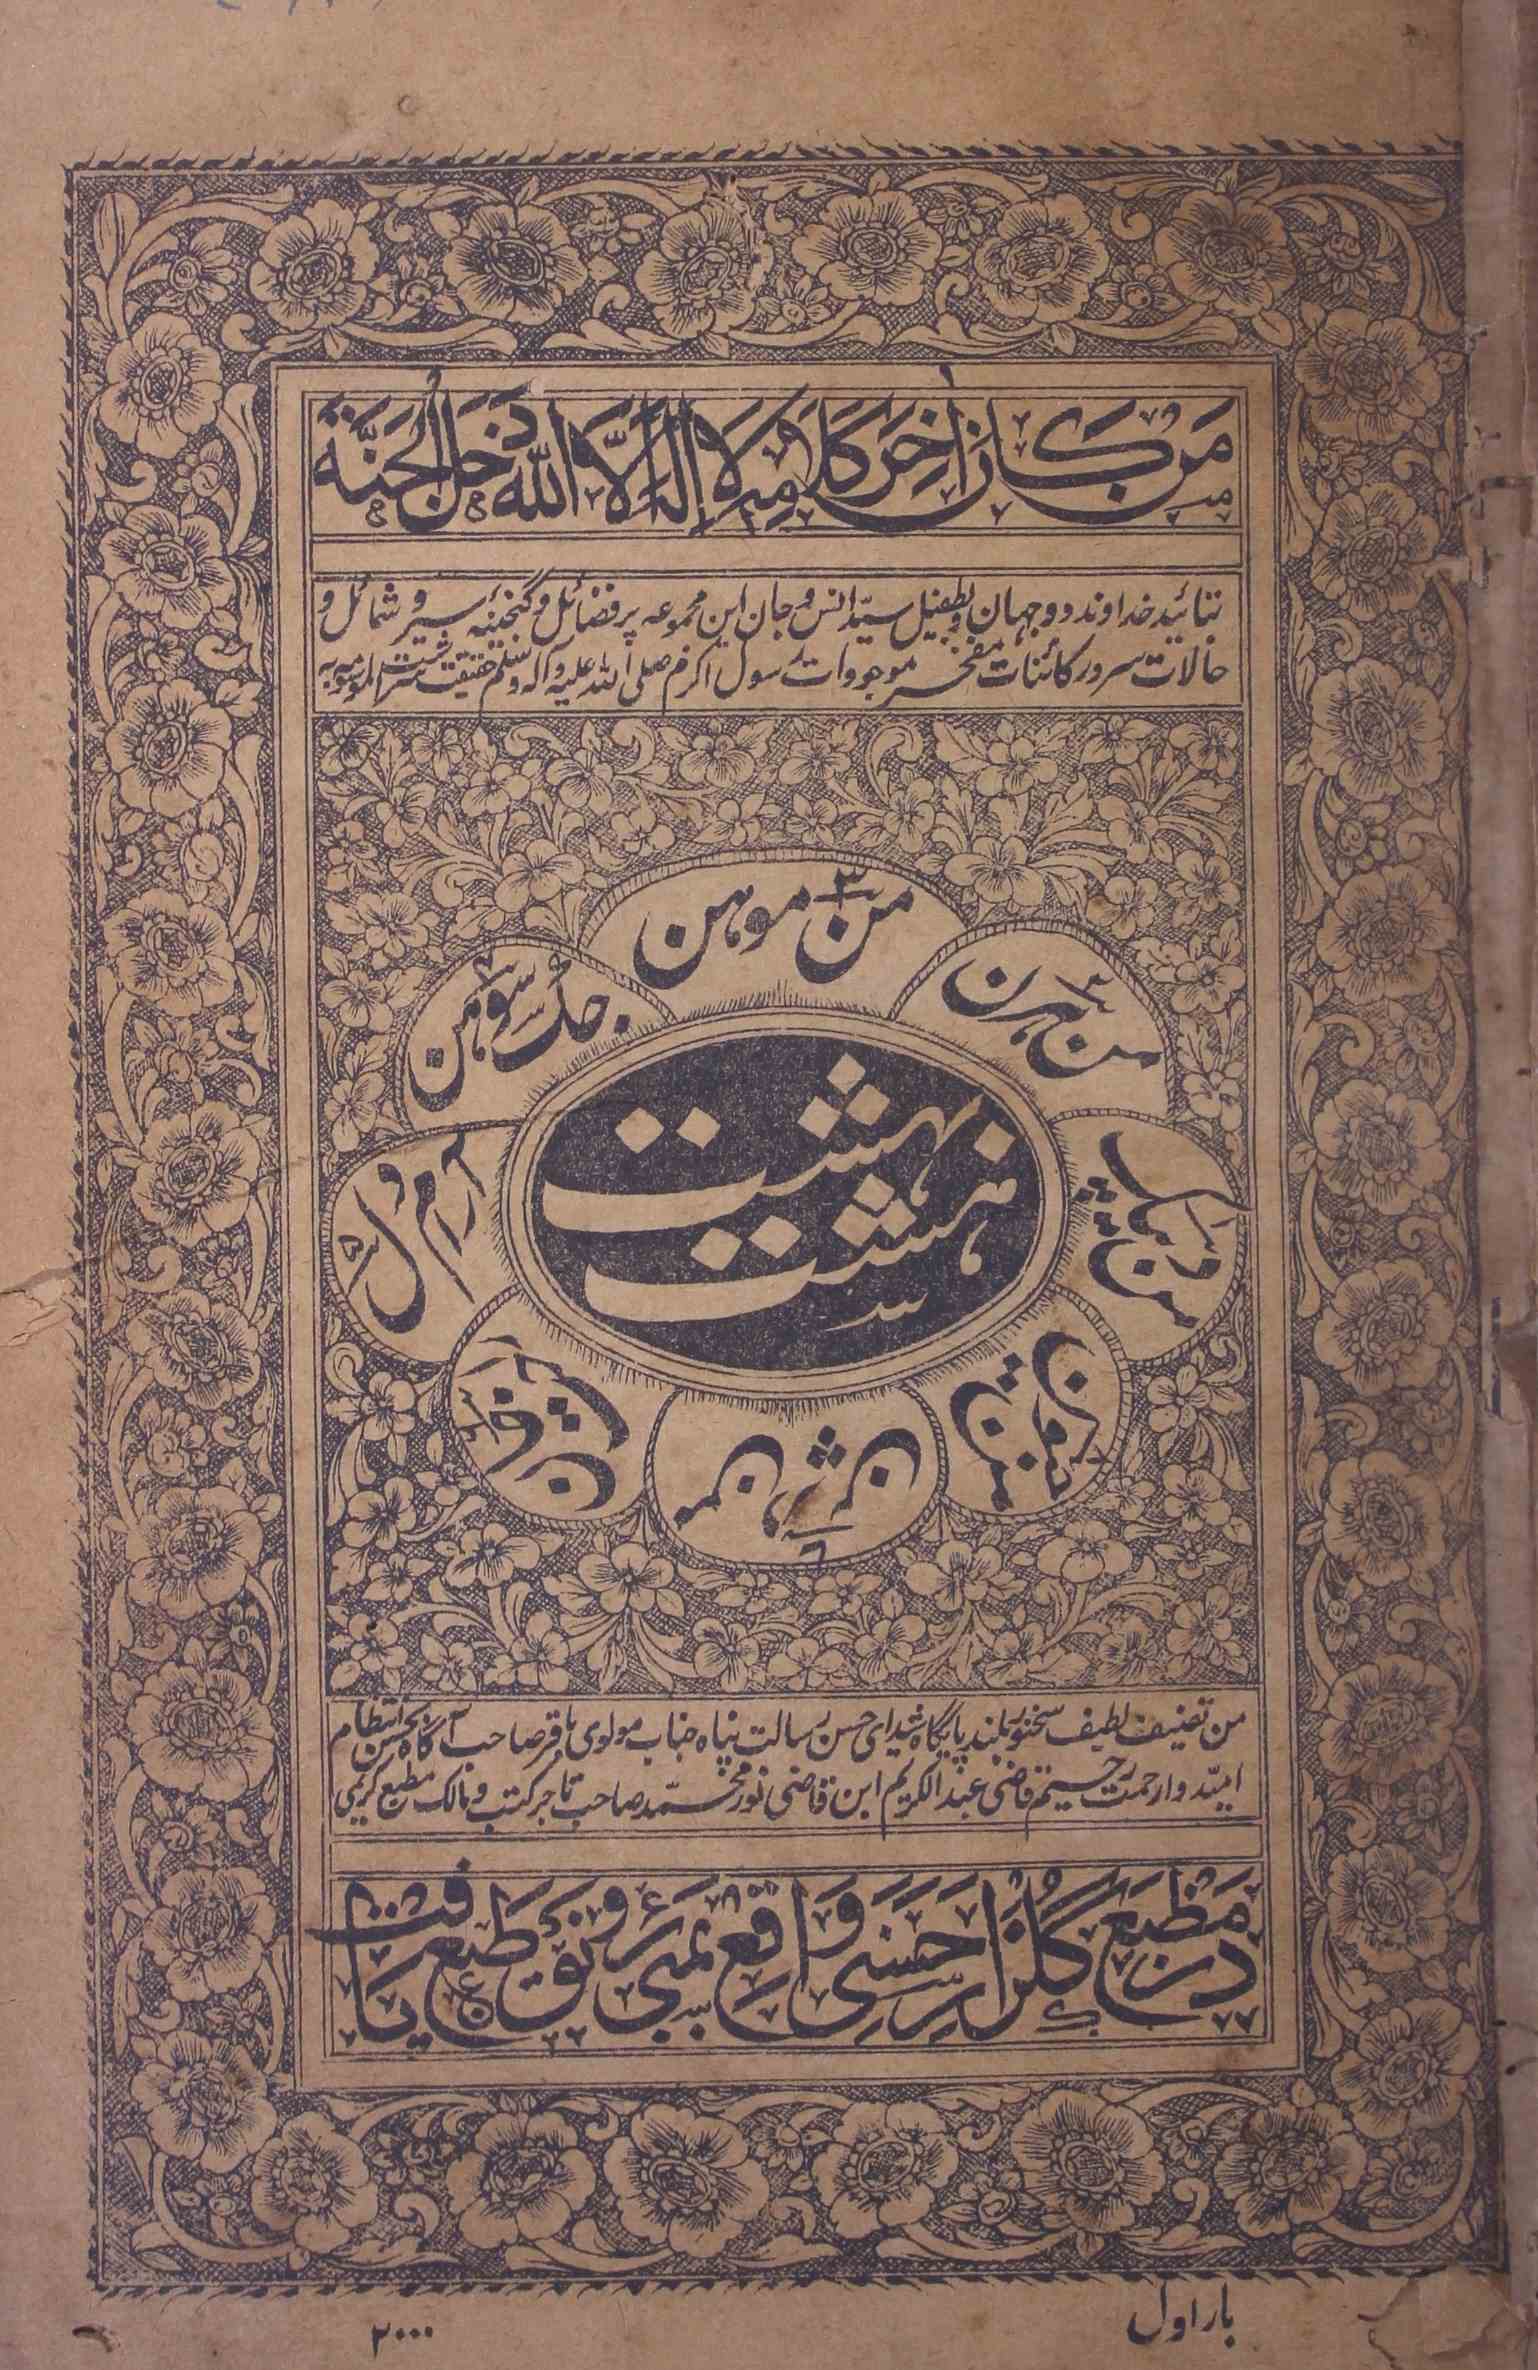 من كان اخر كلامه لا اله الا الله دخل الجنة
بتائید خداوند دو جهان و بطفیل سید انس و جان این مجموعہ پر فضائل و گنجینۂ سیر و شمائل و
حالات سرور کائنات مفخر موجودات رسول اکرم صلی اللہ علیہ وآلہ وسلم حقیقت سرشت الموسومہ بہ
من موہن ۳
من ہرن ۲
جگ سوہن ۴
من دیپک
آرام دل ۵
ہشت بہشت
من درپن
راحت جان
من جیون
من تصنیف لطیف سخنور بلند پایگاہ شیدای حسن رسالت پناہ جناب مولوی باقر صاحب آگاہ بحسن انتظام
امیدوار رحمت رحیم قاضی عبد الکریم ابن قاضی نور محمد صاحب تاجر کتب و مالک مطبع کریمی
در مطبع گلزار حسنی واقع بمبئی رونق طبع یافت
بار اول
۲۰۰۰